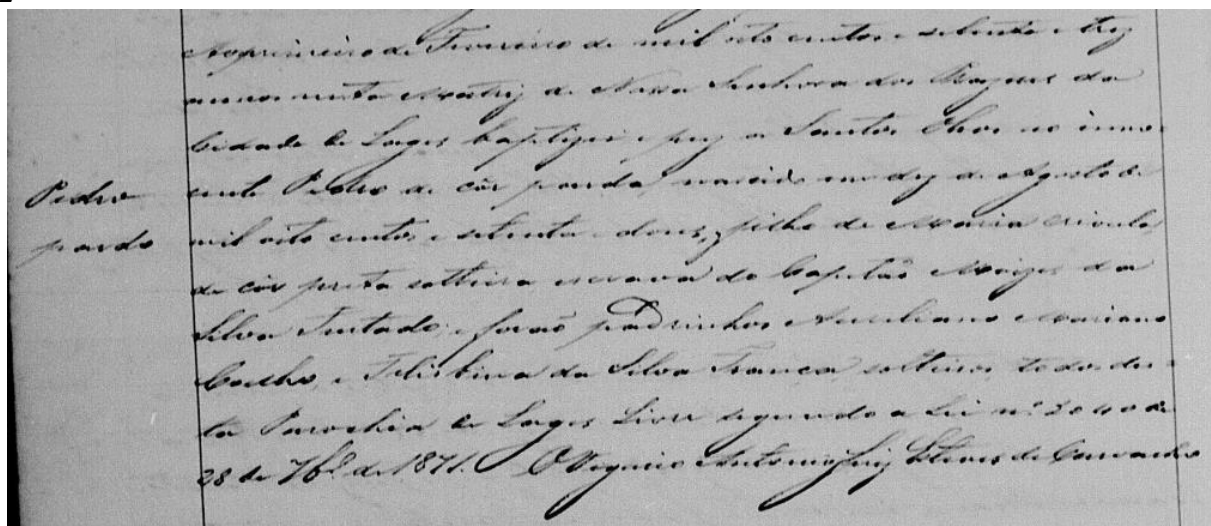 Ao primeiro de Fevereiro de mil oito centos e setenta e trez
annos nesta Matriz de Nossa Senhora dos Prazeres da
Cidade de Lages baptizei e puz os Santos Oleos no inno-
Pedro pardo
cente Pedro de côr parda, nascido em dez de Agosto de
mil oito centos e setenta e dous, filho de Maria crioula,
de côr preta solteira escrava do Capitão Moizes da
Silva Furtado; e forão padrinhos Aureliano Mariano
Coelho, e Felisbina da Silva França, solteiros, todos des-
ta Parochia de Lages Livre segundo a Lei nº 2040 de
28 de 7bº de 1871. O Vigario Antonio Luiz Esteves de Carvalho